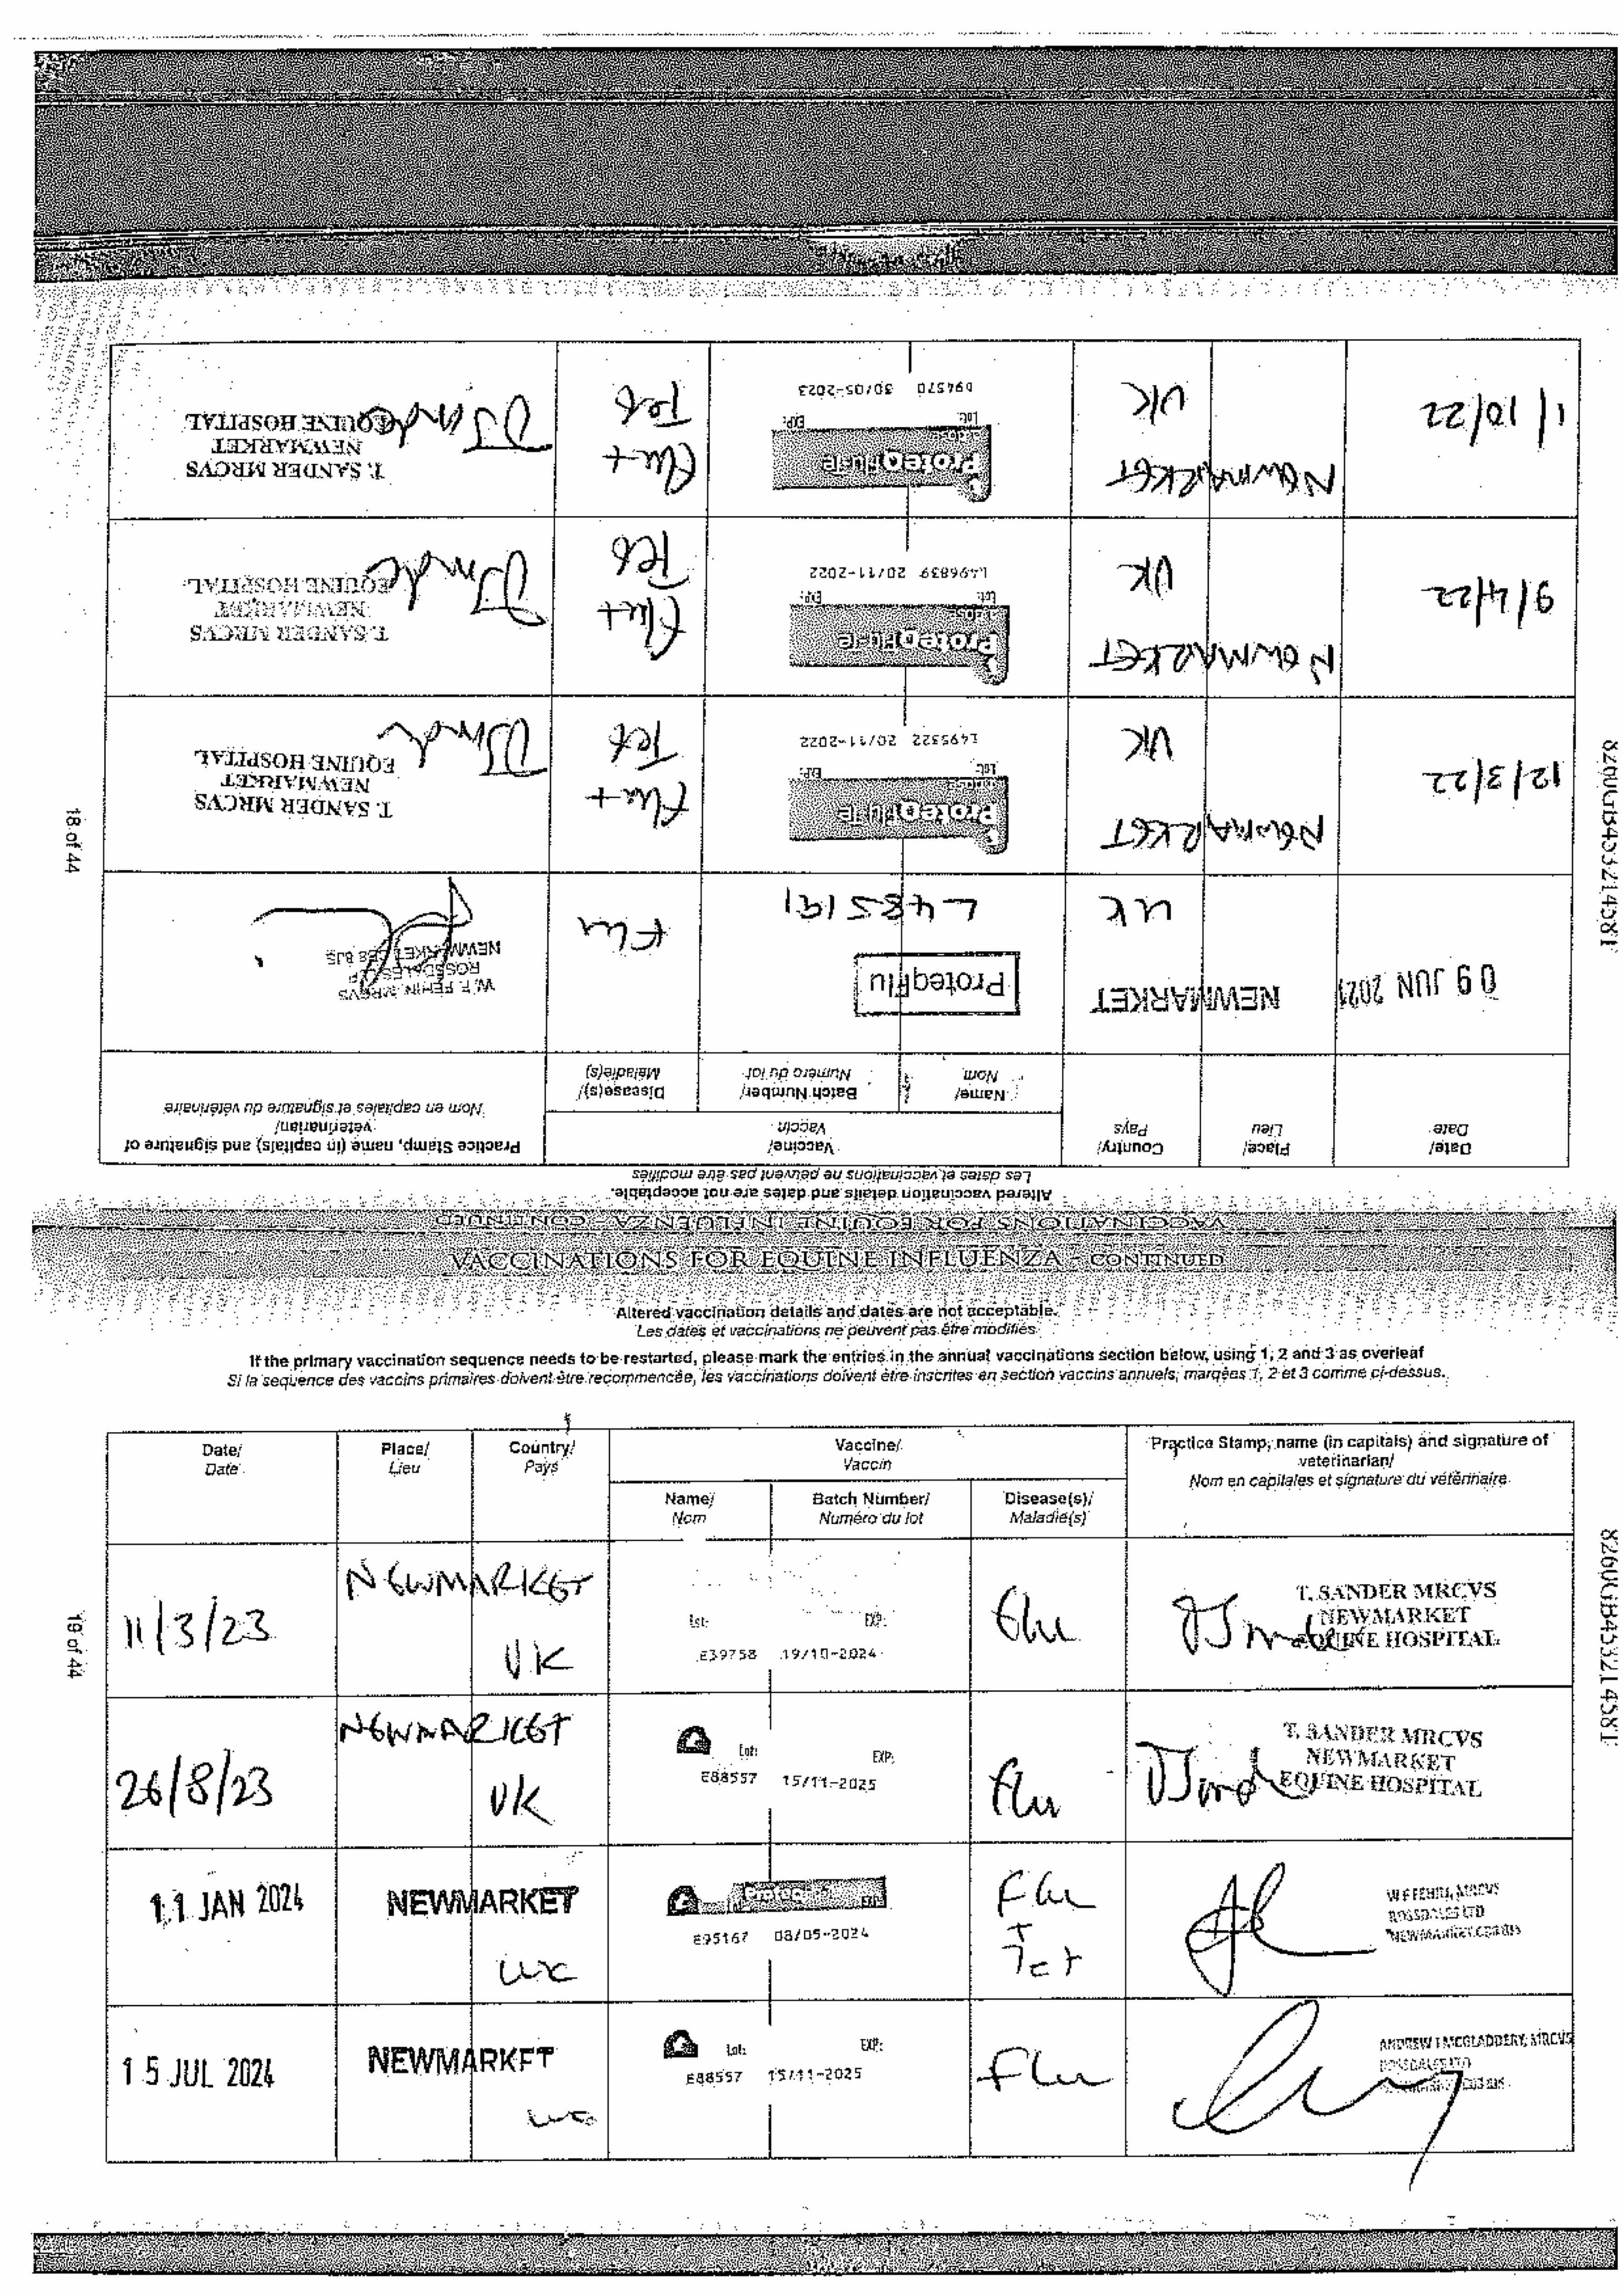 VACCINATIONS FOR EQUINE INFLUENZA - CONTINUED
Altered vaccination details and dates are not acceptable.
Les dates et vaccinations ne peuvent pas être modifiés
Date/
Date
Place/
Lieu
Country/
Pays
Vaccine/
Vaccin
Practice Stamp, name (in capitals) and signature of
veterinarian/
Nom en capitales et signature du vétérinaire
Name/
Nom
Batch Number/
Numéro du lot
Disease(s)/
Maladie(s)
09 JUN 2021
NEWMARKET
UK
ProteqFlu
L485191
Flu
W.F. FEHIN MRCVS
ROSSDALES
NEWMARKET CB8 8JS
12/3/22
NEWMARKET
UK
ProteqFlu-Te
Lot: EXP:
L495322 20/11-2022
Flu +
Tet
T. SANDER MRCVS
NEWMARKET
EQUINE HOSPITAL
9/4/22
NEWMARKET
UK
ProteqFlu-Te
Lot: EXP:
L496839 20/11-2022
Flu +
Tet
T. SANDER MRCVS
NEWMARKET
EQUINE HOSPITAL
1/10/22
NEWMARKET
UK
ProteqFlu-Te
Lot: EXP:
D94570 30/05-2023
Flu +
Tet
T. SANDER MRCVS
NEWMARKET
EQUINE HOSPITAL
18 of 44
VACCINATIONS FOR EQUINE INFLUENZA - CONTINUED
Altered vaccination details and dates are not acceptable.
Les dates et vaccinations ne peuvent pas être modifiés
If the primary vaccination sequence needs to be restarted, please mark the entries in the annual vaccinations section below, using 1, 2 and 3 as overleaf
Si la sequence des vaccins primaires doivent être recommencée, les vaccinations doivent être inscrites en section vaccins annuels, marqées 1, 2 et 3 comme ci-dessus.
Date/
Date
Place/
Lieu
Country/
Pays
Vaccine/
Vaccin
Practice Stamp, name (in capitals) and signature of
veterinarian/
Nom en capitales et signature du vétérinaire
Name/
Nom
Batch Number/
Numéro du lot
Disease(s)/
Maladie(s)
11/3/23
NEWMARKET
UK
Lot: EXP:
E39758 19/10-2024
Flu
T. SANDER MRCVS
NEWMARKET
EQUINE HOSPITAL
26/8/23
NEWMARKET
UK
Lot: EXP:
E88557 15/11-2025
Flu
T. SANDER MRCVS
NEWMARKET
EQUINE HOSPITAL
11 JAN 2024
NEWMARKET
UK
Proteq
E95167 08/05-2024
Flu
+
Tet
ROSSDALES LTD
15 JUL 2024
NEWMARKET
UK
Lot: EXP:
E88557 15/11-2025
Flu
ANDREW J MCGLADDERY, MRCVS
ROSSDALES LTD
19 of 44